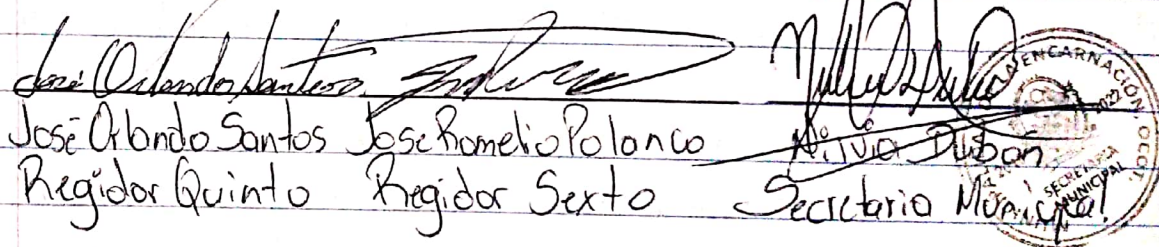 José Orlando Santos
José Orlando Santos José Romelio Polanco Dubón
Regidor Quinto Regidor Sexto Secretaria Municipal
ENCARNACIÓN, OCOT.
SECRETARIA
MUNICIPAL